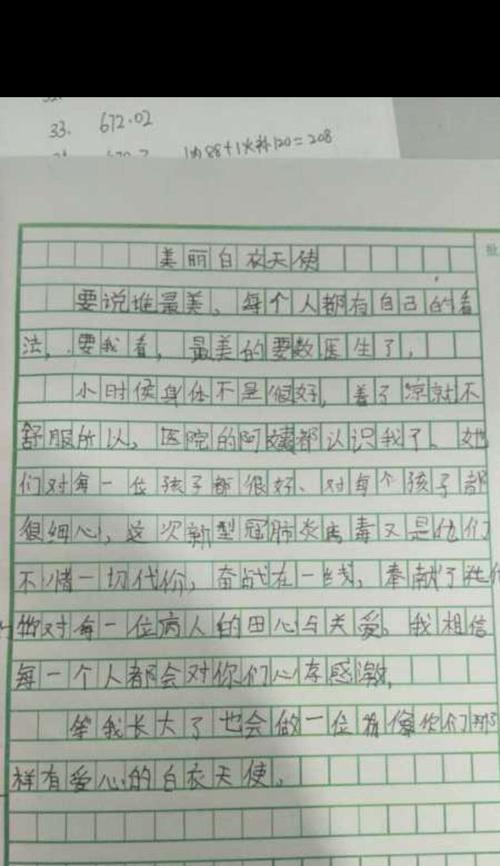 33. 672.02
88+1火补120=208
美丽白衣天使
要说谁最美，每个人都有自己的看
法，要我看，最美的要数医生了，
小时侯身体不是很好，着了凉就不
舒服所以，医院的阿姨都认识我了、她
们对每一位孩子都很好、对每个孩子都
很细心，这次新型冠肺炎病毒又是他们
不惜一切代价，奋战在一线，奉献了
对每一位病人的田心与关爱。我相信
每一个人都会对你们心存感激，
等我长大了也会做一位像你们那
样有爱心的白衣天使。